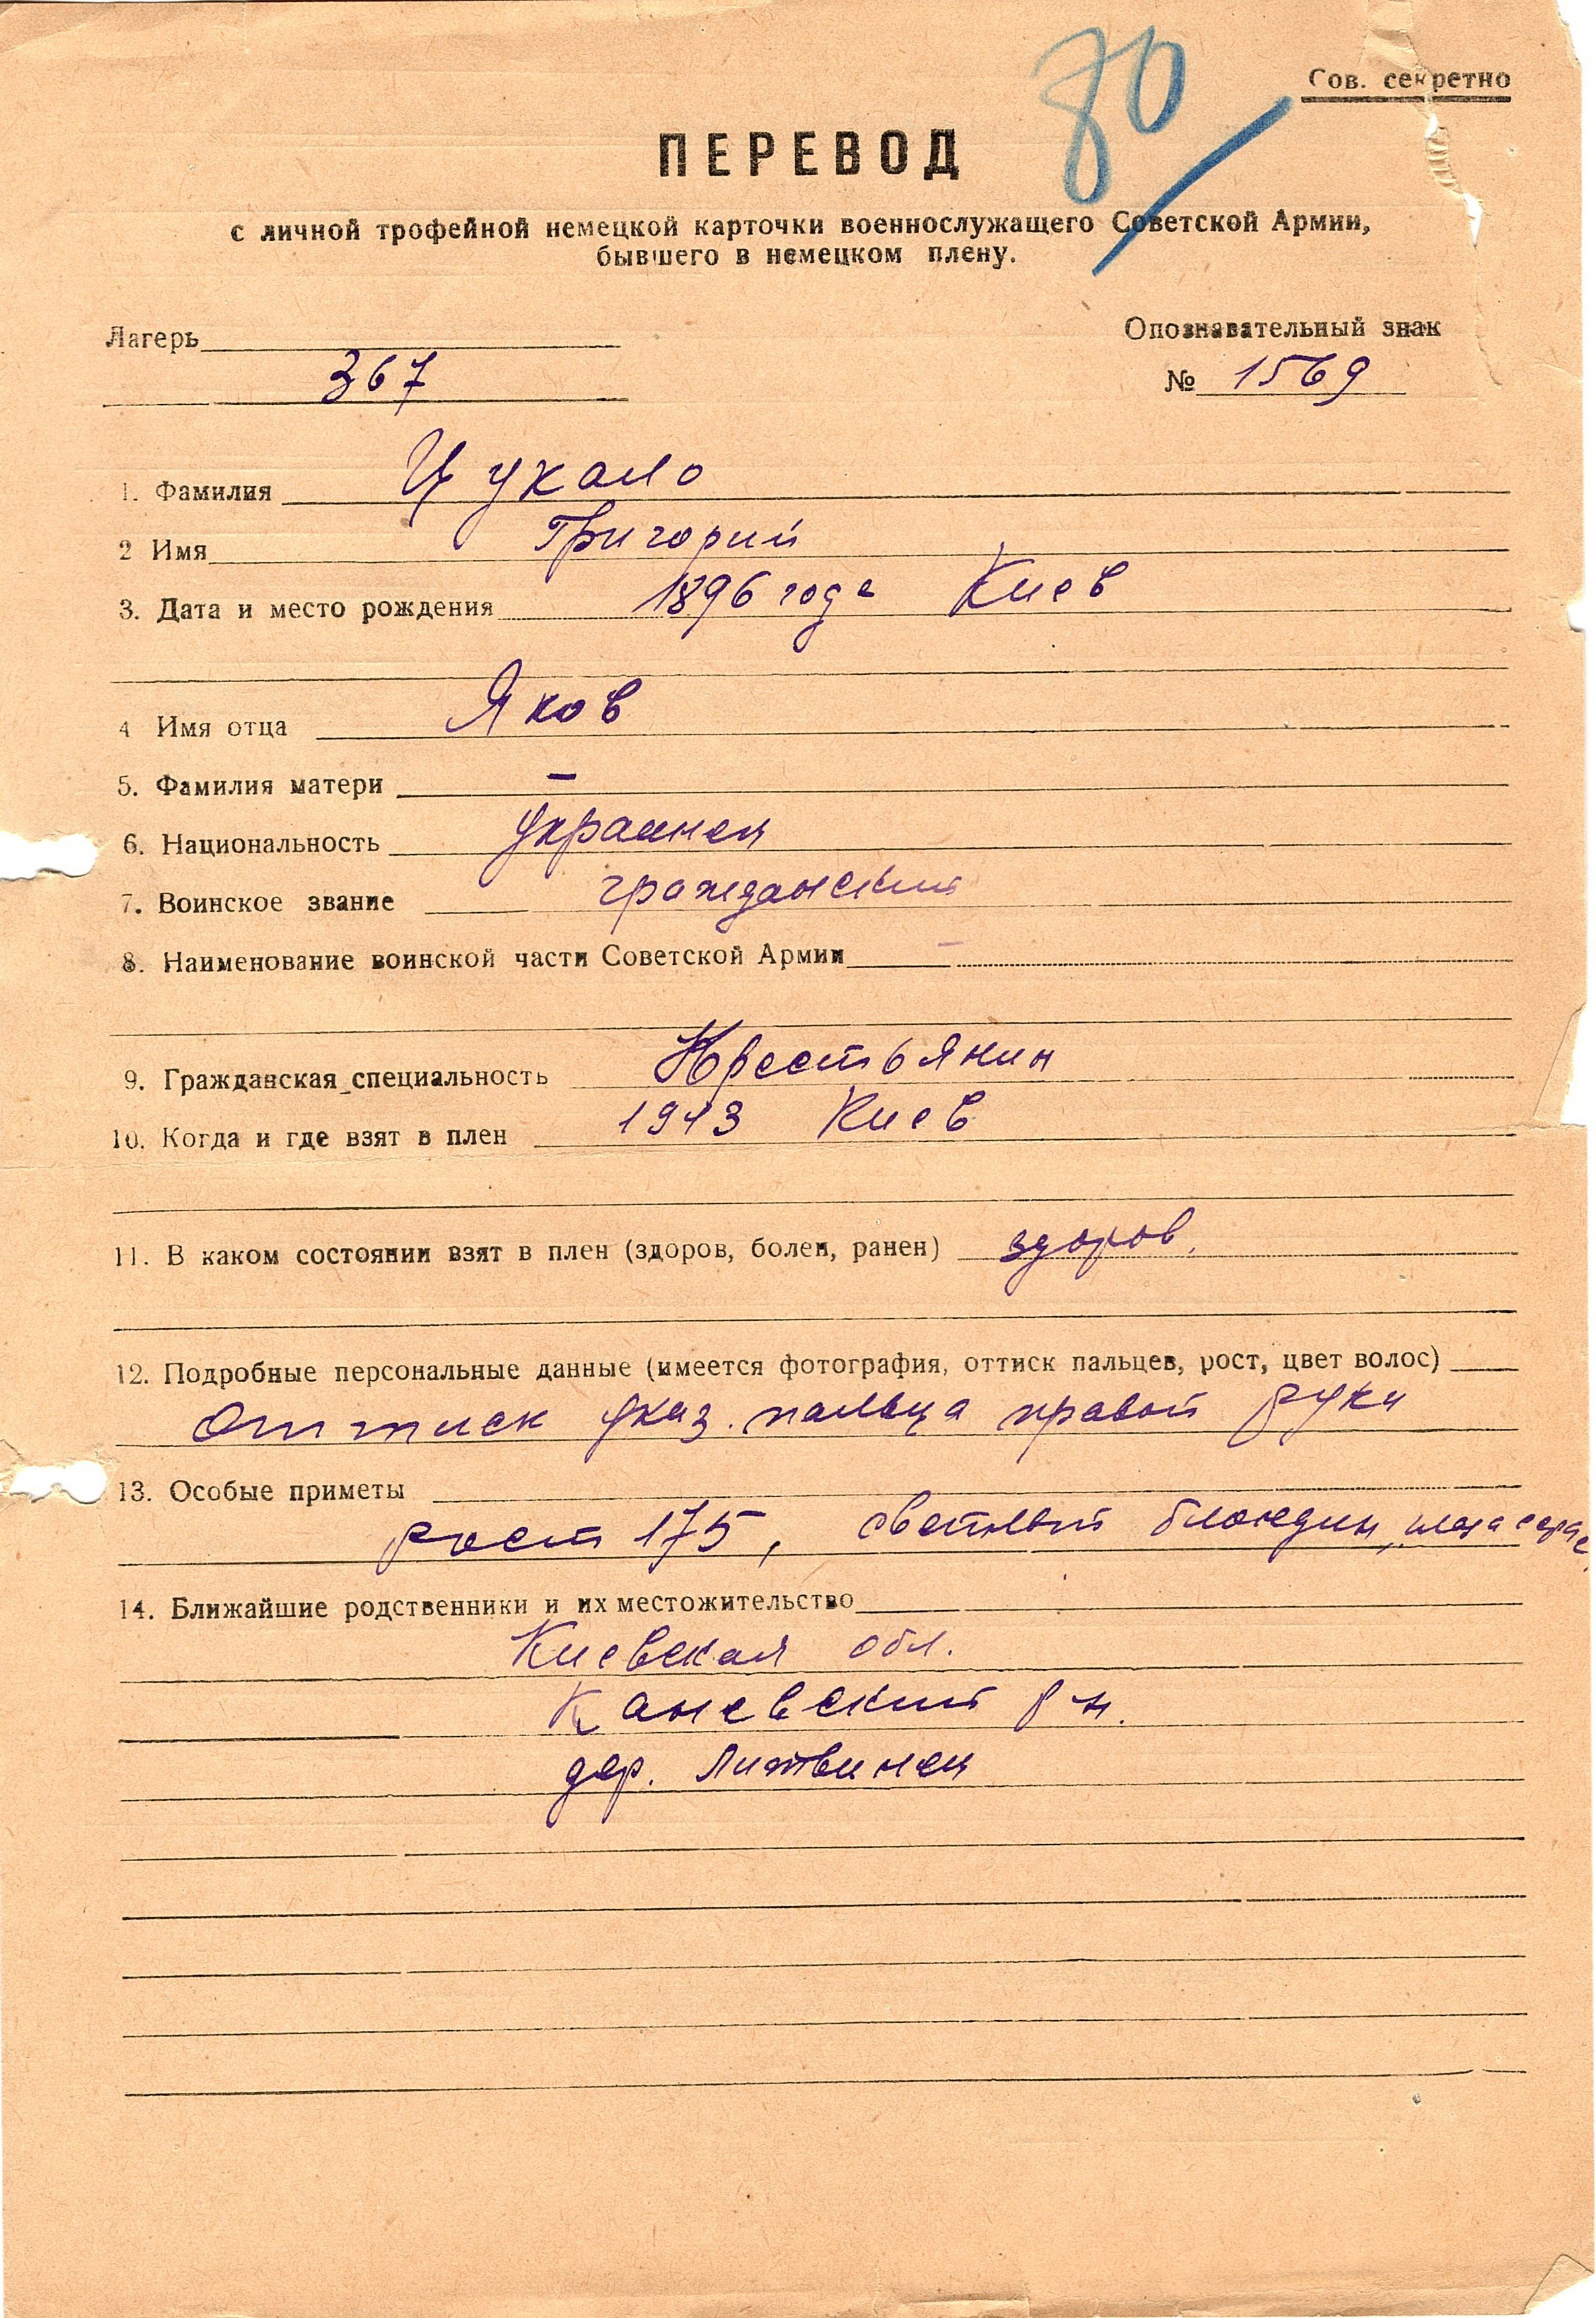 80
Сов. секретно
ПЕРЕВОД
с личной трофейной немецкой карточки военнослужащего Советской Армии,
бывшего в немецком плену.
Лагерь
367
Опознавательный знак
№ 1569
1. Фамилия Цукало
2 Имя Григорий
3. Дата и место рождения 1896 года Киев
4 Имя отца Яков
5. Фамилия матери –
6. Национальность украинец
7. Воинское звание гражданский
8. Наименование воинской части Советской Армии –
9. Гражданская специальность Крестьянин
10. Когда и где взят в плен 1943 Киев
11. В каком состоянии взят в плен (здоров, болен, ранен) здоров.
12. Подробные персональные данные (имеется фотография, оттиск пальцев, рост, цвет волос)
Оттиск указ. пальца правой руки
13. Особые приметы
рост 175, светлый блондин, глаза серые
14. Ближайшие родственники и их местожительство
Киевская обл.
Каневский р-н.
дер. Литвинец